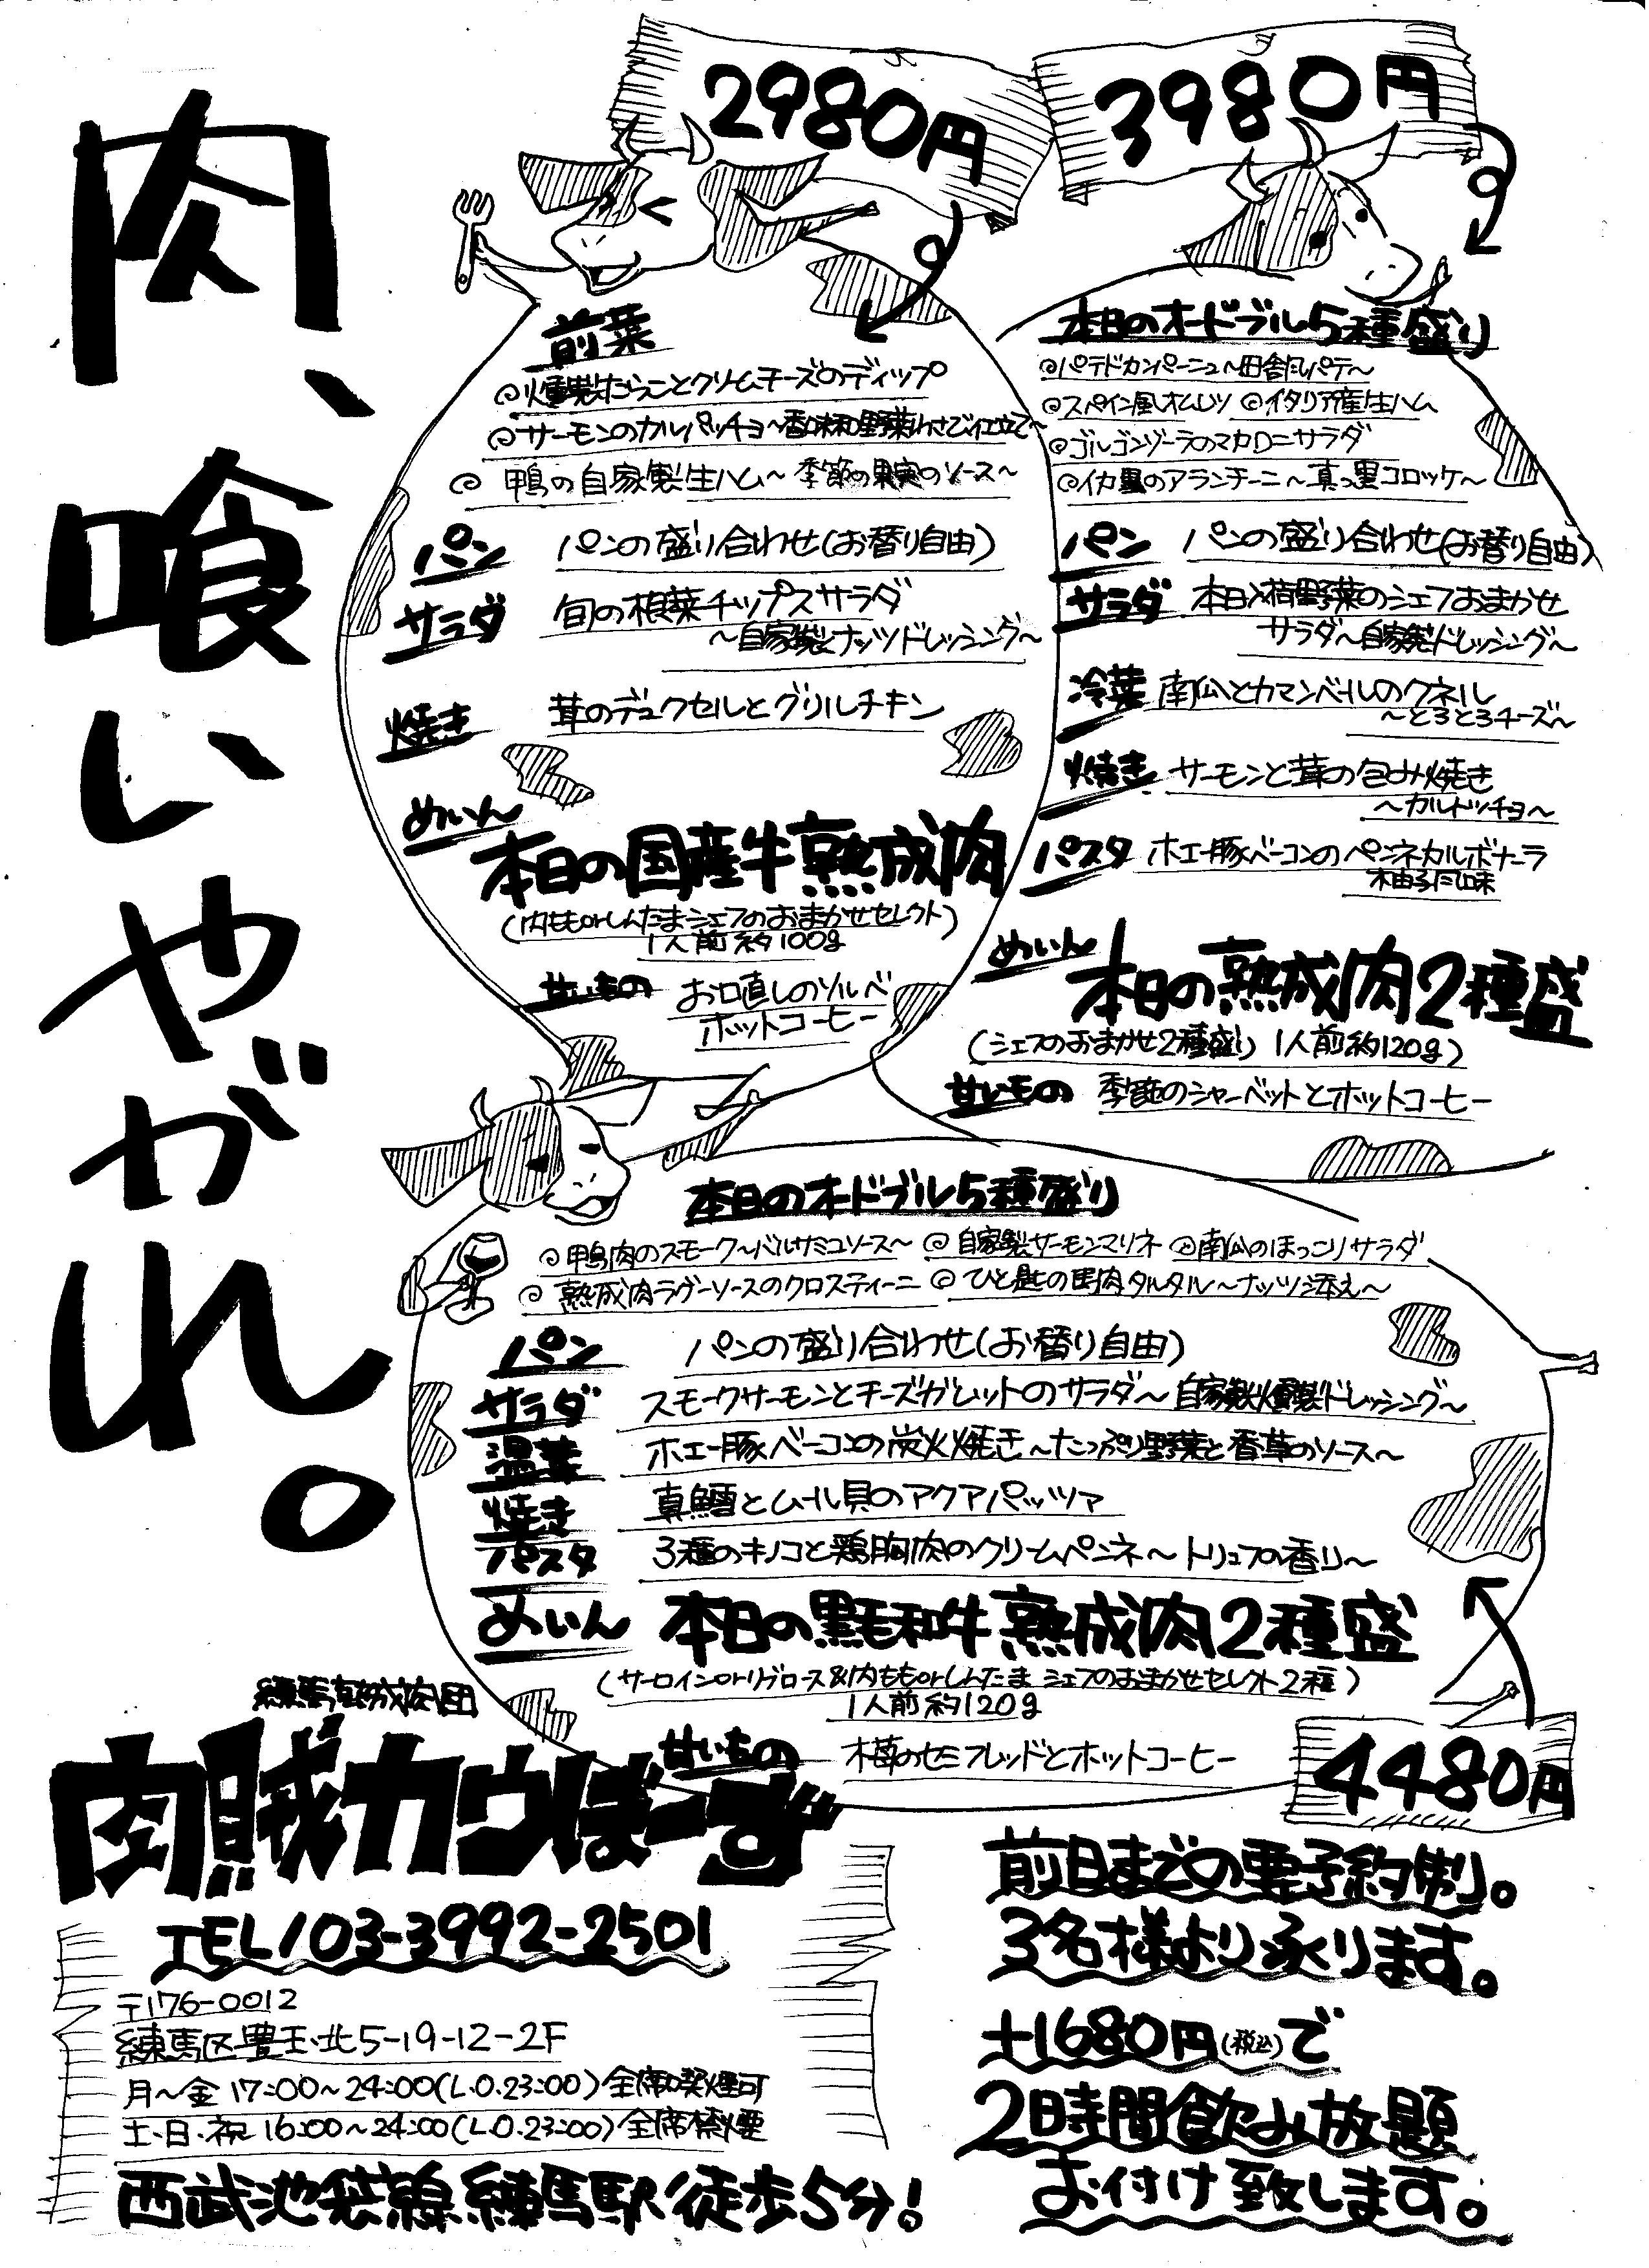 肉、喰いやがれ。
2980円
前菜
燻製たらことクリームチーズのディップ
サーモンのカルパッチョ〜香味和野菜わさび仕立て〜
鴨の自家製生ハム〜季節の果実のソース〜
パン パンの盛り合わせ(お替り自由)
サラダ 旬の根菜チップスサラダ
〜自家製ナッツドレッシング〜
焼き 茸のデュクセルとグリルチキン
めいん
本日の国産牛熟成肉
(内ももorしんたまシェフのおまかせセレクト)
1人前約100g
甘いもの お口直しのソルベ
ホットコーヒー
3980円
本日のオードブル5種盛り
パテドカンパーニュ〜田舎風パテ〜
スペイン風オムレツ イタリア産生ハム
ゴルゴンゾーラのマカロニサラダ
イカ墨のアランチーニ〜真っ黒コロッケ〜
パン パンの盛り合わせ(お替り自由)
サラダ 本日入荷野菜のシェフおまかせ
サラダ〜自家製ドレッシング〜
冷菜 南瓜とカマンベールのクネル
〜とろとろチーズ〜
焼き サーモンと茸の包み焼き
〜カルトッチョ〜
パスタ ホエー豚ベーコンのペンネカルボナーラ
柚子風味
めいん
本日の熟成肉2種盛
(シェフのおまかせ2種盛り 1人前約120g)
甘いもの 季節のシャーベットとホットコーヒー
本日のオードブル5種盛り
鴨肉のスモーク〜バルサミコソース〜 自家製サーモンマリネ 南瓜のほっこりサラダ
熟成肉ラグーソースのクロスティーニ ひと匙の馬肉タルタル〜ナッツ添え〜
パン パンの盛り合わせ(お替り自由)
サラダ スモークサーモンとチーズガレットのサラダ〜自家製燻製ドレッシング〜
温菜 ホエー豚ベーコンの炭火焼き〜たっぷり野菜と香草のソース〜
焼き 真鱈とムール貝のアクアパッツァ
パスタ 3種のキノコと鶏胸肉のクリームペンネ〜トリュフの香り〜
めいん 本日の黒毛和牛熟成肉2種盛
(サーロインorリブロース&内ももorしんたま シェフのおまかせセレクト2種)
1人前約120g
甘いもの 木苺のセミフレッドとホットコーヒー
4480円
練馬熟成肉団
肉賊カウぼーず
TEL/03-3992-2501
〒176-0012
練馬区豊玉北5-19-12-2F
月〜金 17:00〜24:00(L.O.23:00)全席喫煙可
土・日・祝 16:00〜24:00(L.O.23:00)全席禁煙
西武池袋線練馬駅徒歩5分!
前日までの要予約制。
3名様より承ります。
+1680円(税込)で
2時間飲み放題
お付け致します。